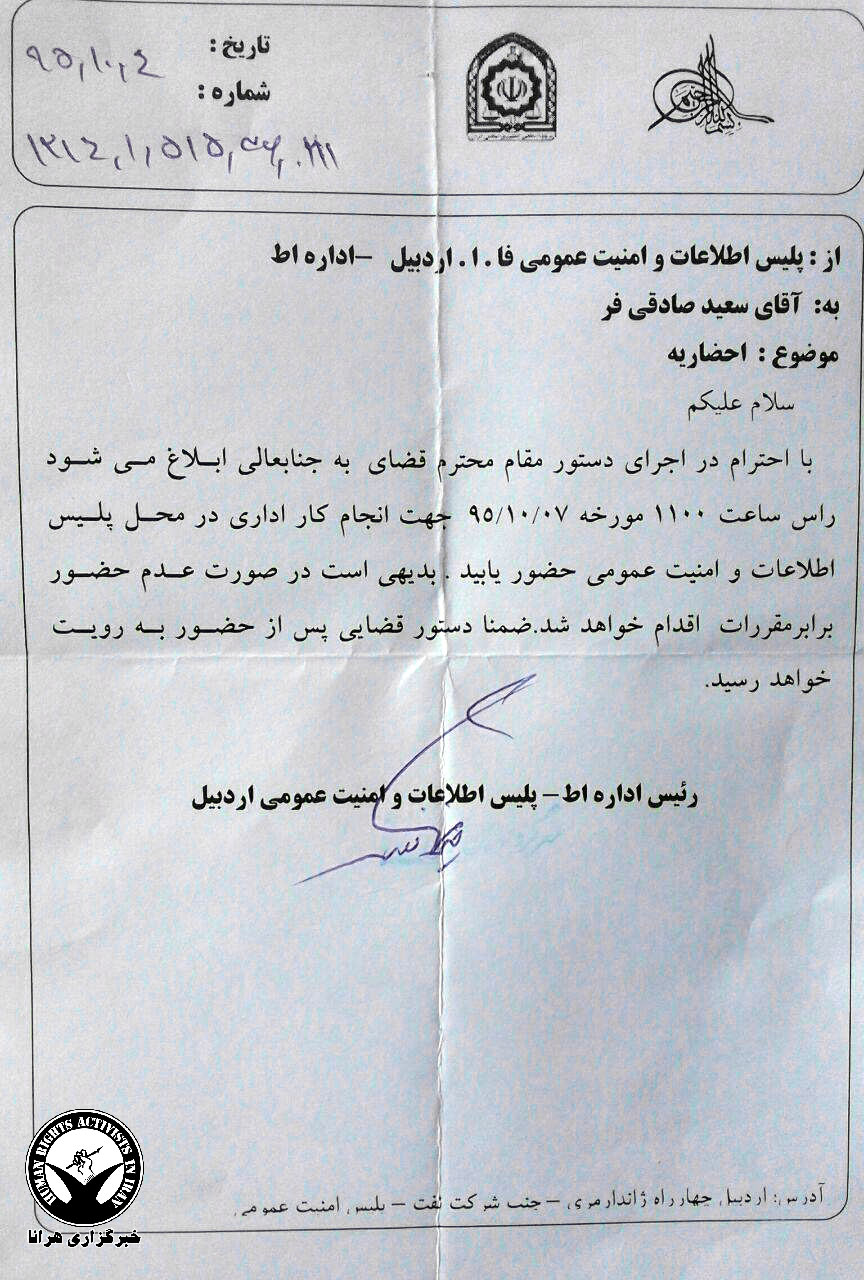 تاریخ :
۹۵٫۱۰٫۴
شماره :
از : پلیس اطلاعات و امنیت عمومی فا . ا . اردبیل –اداره اط
به: آقای سعید صادقی فر
موضوع : احضاریه
سلام علیکم
با احترام در اجرای دستور مقام محترم قضای به جنابعالی ابلاغ می شود
راس ساعت ۱۱۰۰ مورخه ۹۵/۱۰/۰۷ جهت انجام کار اداری در محل پلیس
اطلاعات و امنیت عمومی حضور یابید . بدیهی است در صورت عدم حضور
برابرمقررات اقدام خواهد شد.ضمنا دستور قضایی پس از حضور به رویت
خواهد رسید.
رئیس اداره اط– پلیس اطلاعات و امنیت عمومی اردبیل
آدرس: اردبیل چهارراه ژاندارمری – جنب شرکت نفت – پلیس امنیت عمومی
HUMAN RIGHTS ACTIVISTS IN IRAN
خبرگزاری هرانا